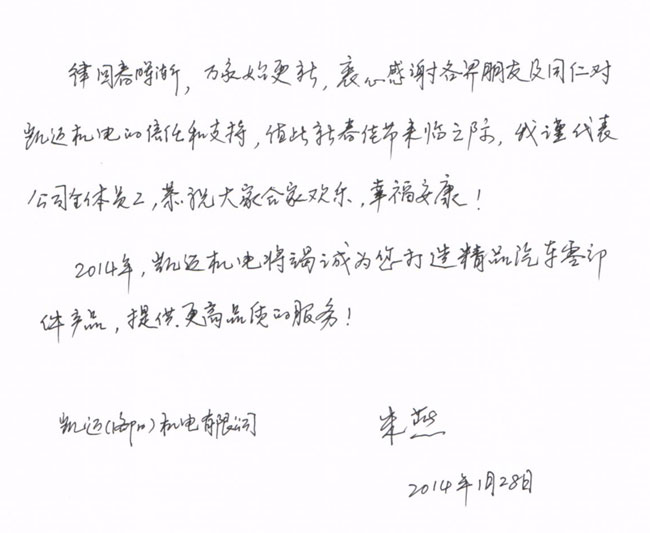 律回春晖渐，万象始更新，衷心感谢各界朋友及同仁对
凯迈机电的信任和支持，值此新春佳节来临之际，我谨代表
公司全体员工，恭祝大家合家欢乐，幸福安康！
2014年，凯迈机电将竭诚为您打造精品汽车零部
件产品，提供更高品质的服务！
凯迈(洛阳)机电有限公司
2014年1月28日